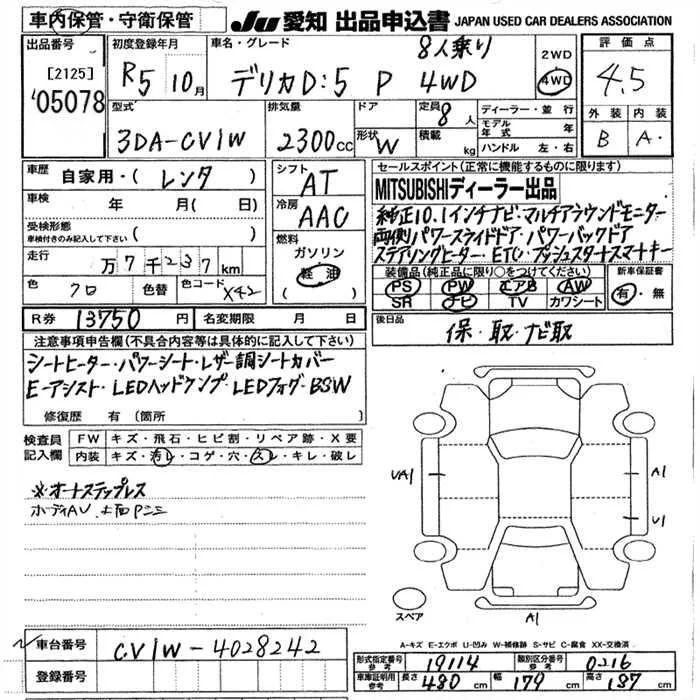 車内保管・守衛保管
JU 愛知 出品申込書 JAPAN USED CAR DEALERS ASSOCIATION
出品番号
[2125]
05078
初度登録年月
R5 10月
車名・グレード
8人乗り
デリカD:5 P 4WD
2WD
4WD
評価点
4.5
外装 内装
B A・
型式
3DA-CV1W
排気量
2300cc
ドア
形状 W
定員 8人
積載 kg
ディーラー・並行
モデル年式 年
ハンドル 左・右
車歴 自家用・(レンタ)
車検 年 月 ( 日)
受検形態
車検付きのみ記入して下さい ( )
走行 万7千237km
色 クロ 色替 色コード X42
シフト
AT
冷房
AAC
燃料
ガソリン
軽油
セールスポイント(正常に機能するものに限ります)
MITSUBISHIディーラー出品
純正10.1インチナビ・マルチアラウンドモニター
両側パワースライドドア・パワーバックドア
ステアリングヒーター・ETC・プッシュスタートスマートキー
装備品(純正品に限り○をつけてください)
PS PW エアB AW
SR ナビ TV カワシート
新車保証書
有・無
R券 13750円 名変期限 月 日
後日品
保・取・ナビ取
注意事項申告欄(不具合内容等は具体的に記入して下さい)
シートヒーター・パワーシート・レザー調シートカバー
E-アシスト・LEDヘッドランプ・LEDフォグ・BSW
修復歴 有 (箇所 )
検査員記入欄
FW キズ・飛石・ヒビ割・リペア跡・X要
内装 キズ・汚レ・コゲ・穴・スレ・キレ・破レ
※オートステップレス
ボディAU
UA1
A1
U1
A1
スペア
A-キズ E-エクボ U-凹み W-補修跡 S-サビ C-腐食 XX-交換済
車台番号 CV1W-4028242
登録番号
形式指定番号 参考 19114 類別区分番号 参考 0216
車庫証明用 参考 長さ 480cm 幅 179cm 高さ 187cm